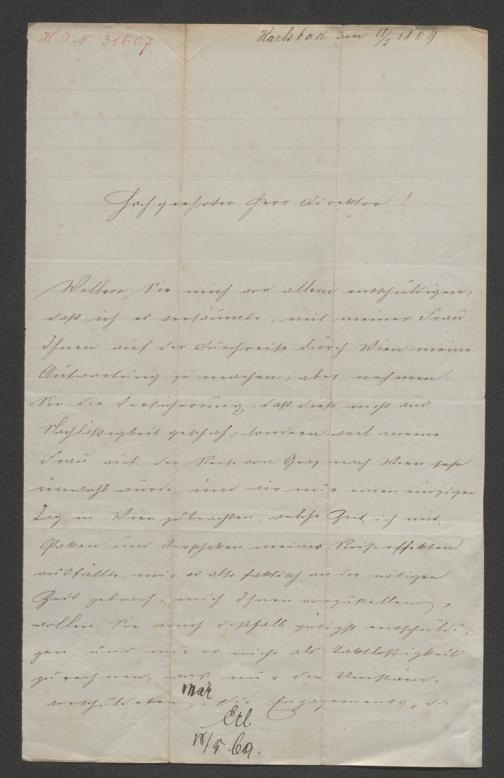 H. I. N. 31607
Karlsbad am 18/5 1869
Hochgeehrter Herr Direktor!
Wollen Sie mich vor allem entschuldigen,
daß ich es versäumte, mit meiner Frau
Ihnen auf der Durchreise durch Wien meine
Aufwartung zu machen, aber nehmen
Sie die Versicherung, daß dieß nicht aus
Nachläßigkeit geschah, sondern weil meine
Frau auf der Reise von Graz nach Wien sehr
unwohl wurde, und wir nur einen einzigen
Tag in Wien zubrachten, welche Zeit ich mit
Paken und meiner Reiseeffekten
ausfüllte, mir es also faktisch an der nötigen
Zeit gebrach, mich Ihnen vorzustellen,
wollen Sie mich deßhalb gütigst entschuldi-
gen, und mir es nicht als Taktlosigkeit
zurechnen, was nur die Umstände
verschuldeten. Die Engagements, die
Erl
18/5 69.